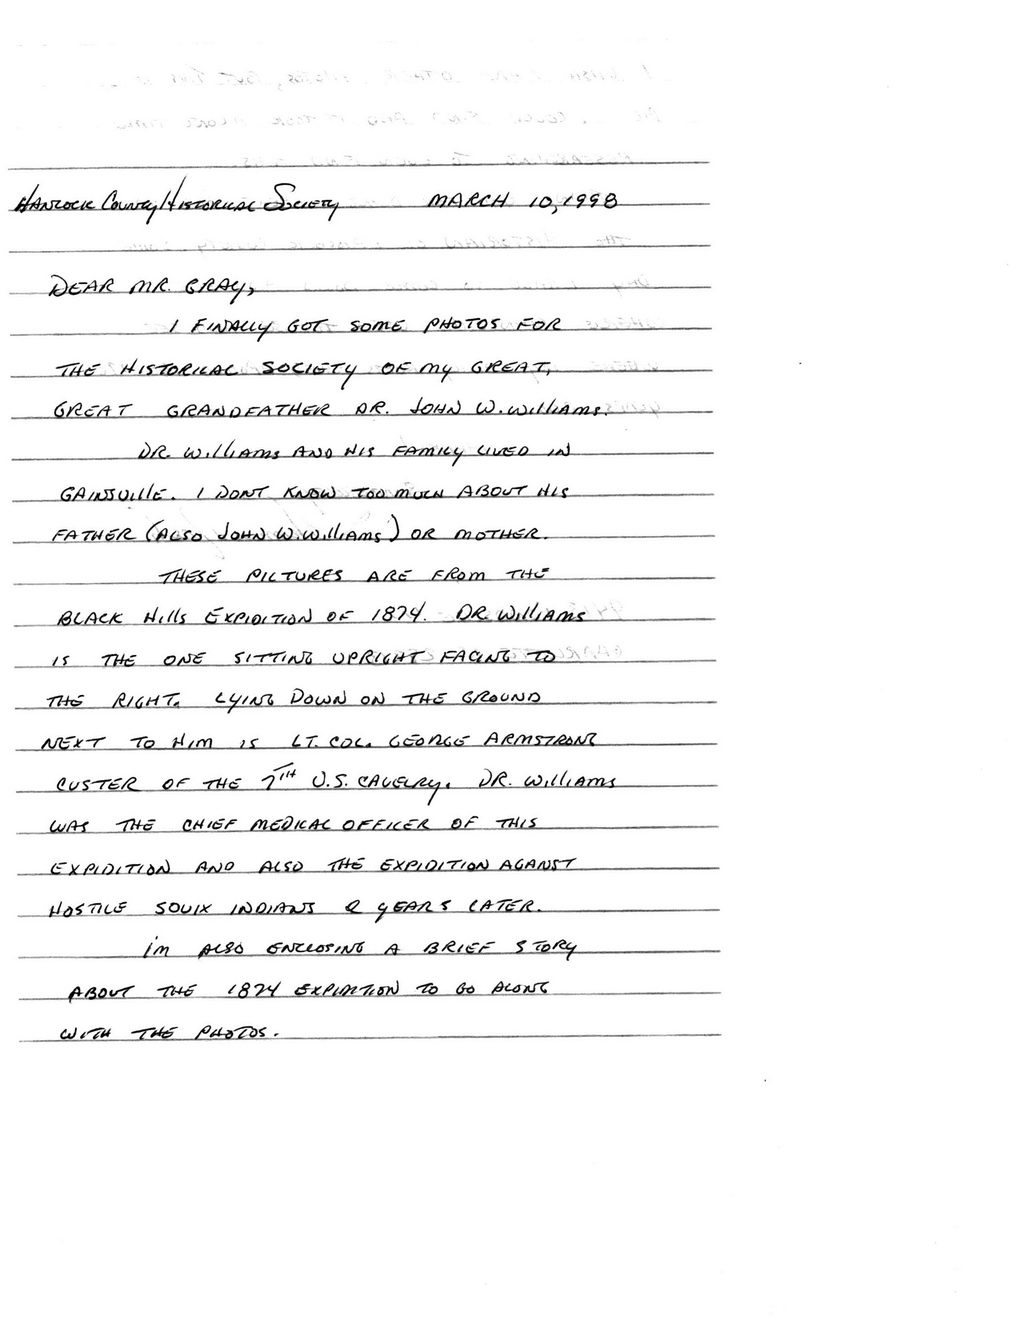 Hancock County Historical Society MARCH 10, 1998
DEAR MR. GRAY,
I FINALLY GOT SOME PHOTOS FOR
THE HISTORICAL SOCIETY OF MY GREAT,
GREAT GRANDFATHER DR. JOHN W. WilliAMS.
DR. WilliAMS AND HIS FAMILY LIVED IN
GAINSVIlle. I DONT KNOW TOO MUCH ABOUT HIS
FATHER (ALSO JOHN W. WilliAMS) OR MOTHER.
THESE PICTURES ARE FROM THE
BLACK Hills EXPIDITION OF 1874. DR. WilliAMS
IS THE ONE SITTING UPRIGHT FACING TO
THE RIGHT. LYING DOWN ON THE GROUND
NEXT TO HIM IS LT. COL. GEORGE ARMSTRONG
CUSTER OF THE 7TH U.S. CAVELRY. DR. WilliAMS
WAS THE CHIEF MEDICAL OFFICER OF THIS
EXPIDITION AND ALSO THE EXPIDITION AGANST
HOSTILE SOUIX INDIANS 2 YEARS LATER.
I'm ALSO ENCLOSING A BRIEF STORY
ABOUT THE 1874 EXPIDITION TO GO ALONG
WITH THE PHOTOS.